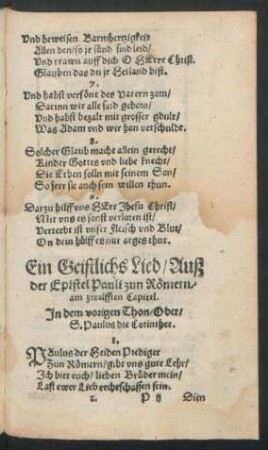 Vnd beweisen Barmhertzigkeit
Allen den/so jr sünd sind leid/
Vnd trawn auff dich O HErre Christ.
Glauben das du jr Heiland bist.
7.
Vnd habst versönt des Vatern zorn/
Darinn wir alle sind geborn/
Vnd habst bezalt mit grosser gdult/
Was Adam vnd wir han verschuldt.
8.
Solcher Glaub macht allein gerecht/
Kinder Gottes vnd liebe knecht/
Die Erben solln mit seinem Son/
So herr sie auch sein willen thun.
9.
Darzu hilff vns HErr Jhesu Christ/
Mit vns es sonst verloren ist/
Verterbt ist vnser Fleisch vnd Blut/
On dein hülff es nur arges thut.
Ein Geistlichs Lied/Auß
der Epistel Pauli zun Römern/
am zwelfften Capitel.
In dem vorigen Thon/Oder/
S. Paulus die Corinther.
1.
PAulus der Heiden Prediger
Zun Römern/gibt vns gute Lehr/
Ich bitt euch/lieben Brüder mein/
Last ewer Lieb rechtschaffen sein.
2. P Dien